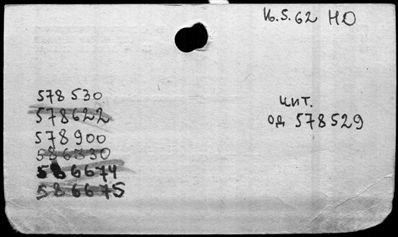 16.5.62 НО
578530
578622
578900
586330
586674
586675
цит.
од 578529